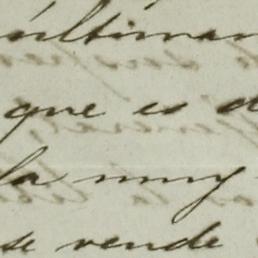 últiman
que es d
la muy
se vende